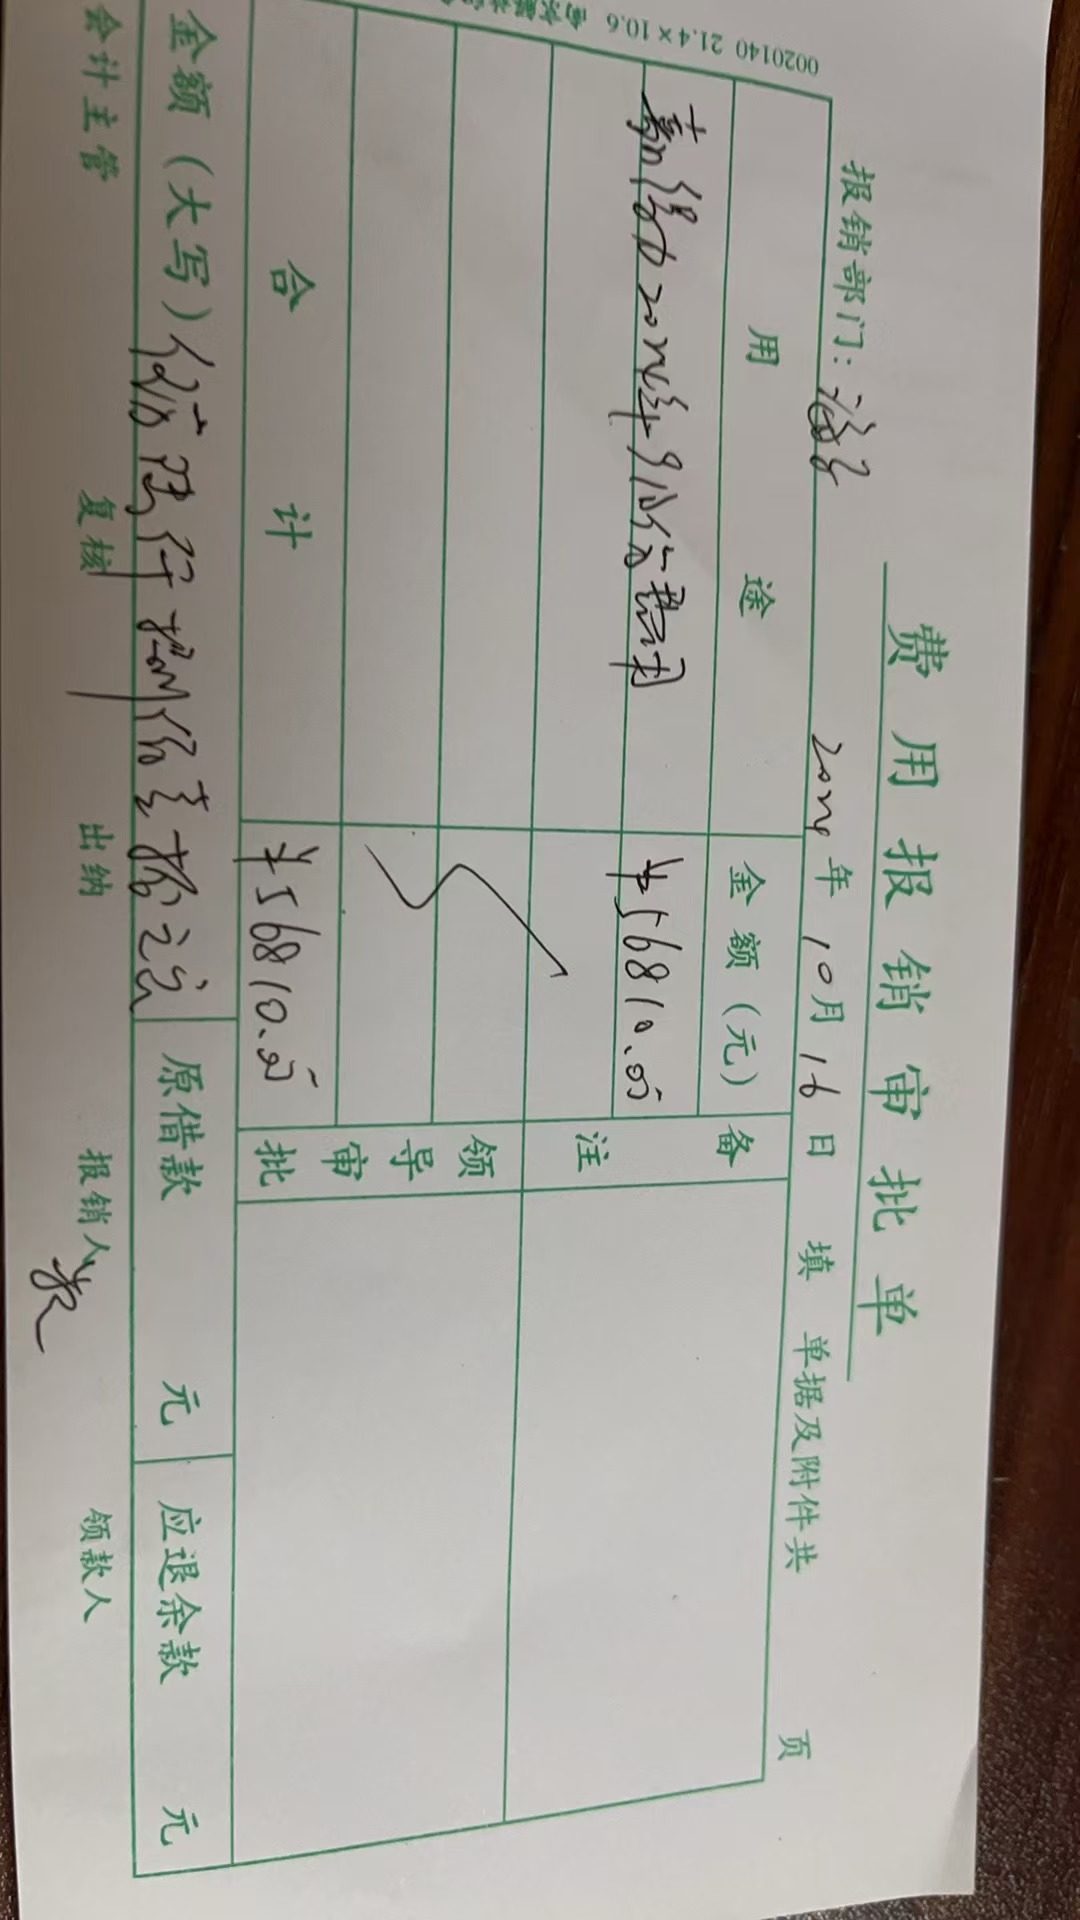 费用报销审批单
报销部门： 2024 年 10 月 16 日 填 单据及附件共 页
用途 金额（元） 备注
2024年9月份 费用 ¥56810.05
领导审批
合计 ¥56810.05
金额（大写）伍万陆仟捌佰壹拾元 原借款 元 应退余款 元
会计主管 复核 出纳 报销人 领款人
0020140 21.4×10.6